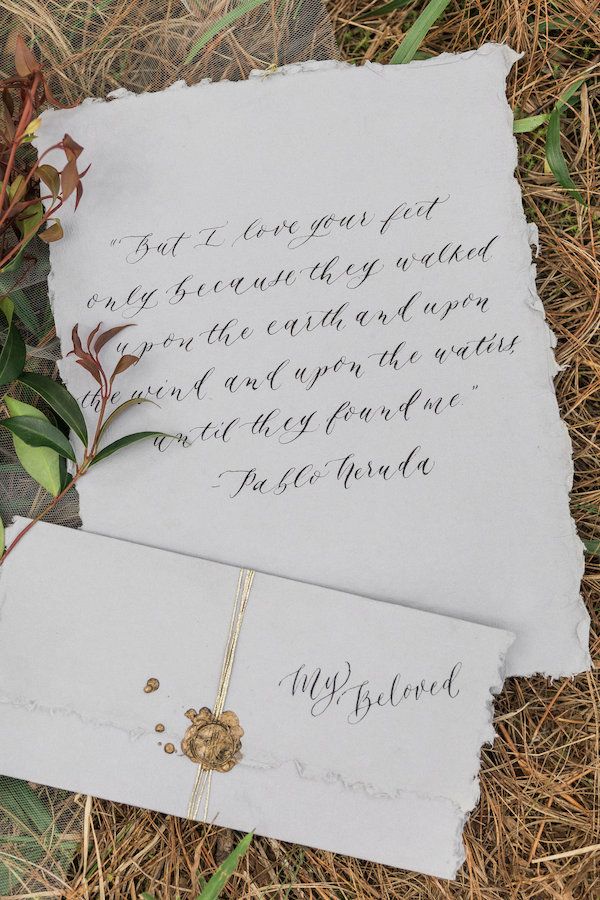 "But I love your feet
only because they walked
upon the earth and upon
the wind and upon the waters,
until they found me."
- Pablo Neruda
My Beloved